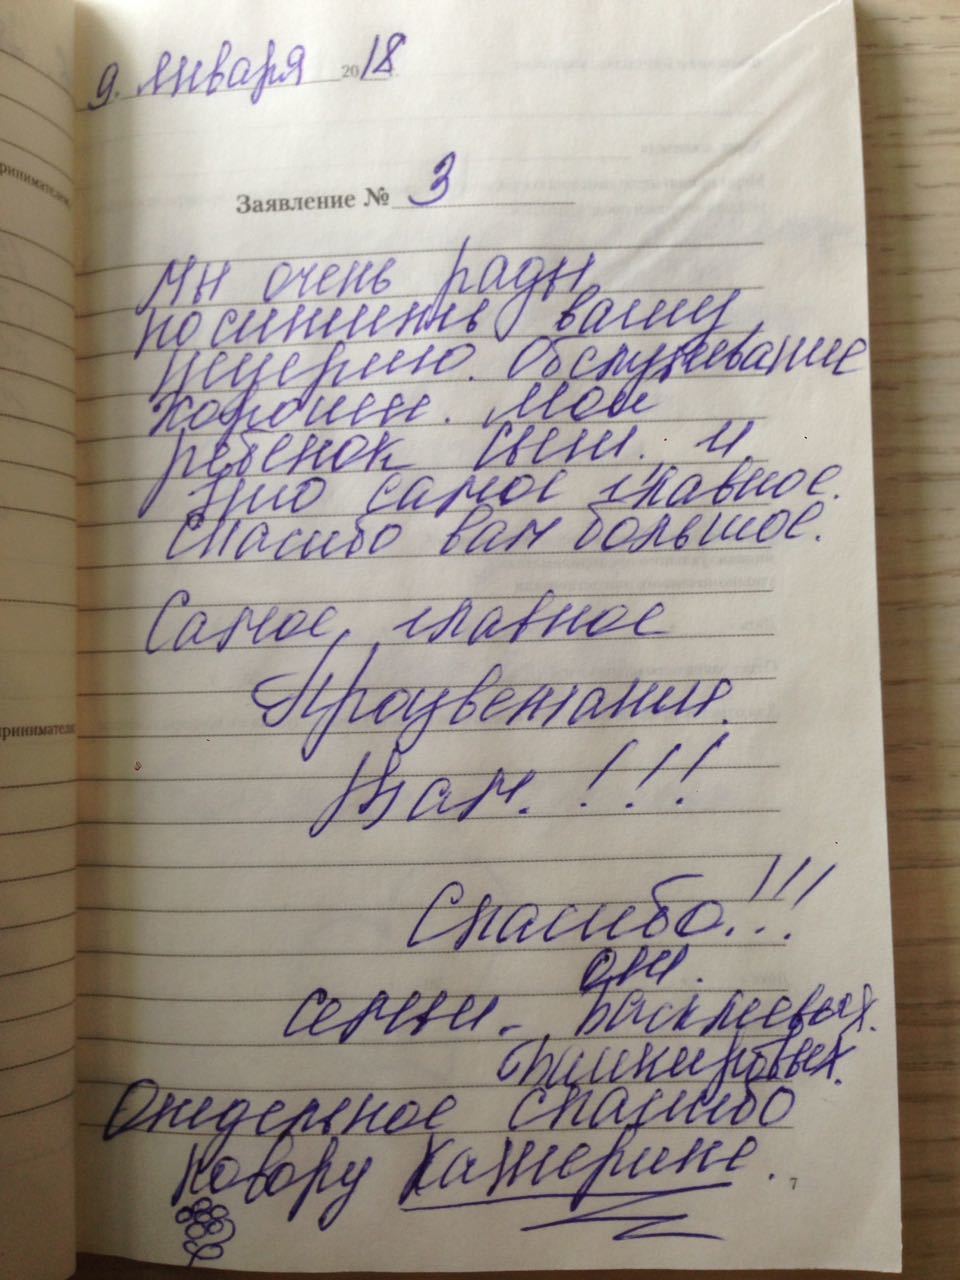 9. Января 2018
Заявление № 3
Мы очень рады
поситить вашу
пецерию. Обслуживание
хорошее. Мой
ребенок сыт. и
это самое главное.
Спасибо вам большое.
Самое главное
Процветания.
Вам. !!!
Спасибо!!!
от.
семьи.
Отдельное спасибо
повару Катерине.
7
ринимателем
принимателе